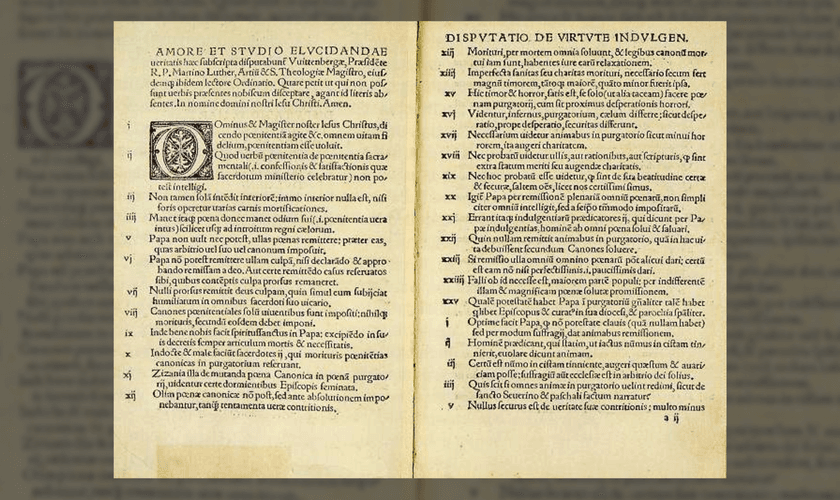 AMORE ET STVDIO ELVCIDANDAE
ueritatis hæc subscripta disputabunť Vuittenbergæ, Præsidēte
R. P. Martino Luther, Artiū & S. Theologiæ Magistro, eius-
demq; ibidem lectore Ordinario. Quare petit ut qui non pos-
sunt uerbis præsentes nobiscum disceptare, agant id literis ab-
sentes. In nomine domini nostri Iesu Christi. Amen.
i DOminus & Magister noster Iesus Christus, di
cendo pœnitentiā agite &c. omnem uitam fi
delium, pœnitentiam esse uoluit.
ij Quod uerbū pœnitentia de pœnitentia sacra
mentali (.i. confessionis & satisfactionis quæ
sacerdotum ministerio celebratur) non po-
test intelligi.
iij Non tamen solā intēdit interiorē: immo interior nulla est, nisi
foris operetur uarias carnis mortificationes.
iiij Manet itaq; pœna donec manet odium sui (.i. pœnitentia uera
intus) scilicet usq; ad introitum regni cælorum.
v Papa non uult nec potest, ullas pœnas remittere: præter eas,
quas arbitrio uel suo uel canonum imposuit.
vj Papa nō potest remittere ullam culpā, nisi declarādo & appro-
bando remissam a deo. Aut certe remittēdo casus reseruatos
sibi, quibus contēptis culpa prorsus remaneret.
vij Nulli prorsus remittit deus culpam, quin simul eum subijciat
humiliatum in omnibus sacerdoti suo uicario.
viij Canones pœnitentiales solū uiuentibus sunt impositi: nihilq;
morituris, secundū eosdem debet imponi.
ix Inde bene nobis facit spiritussanctus in Papa: excipiēdo in su-
is decretis semper articulum mortis & necessitatis.
x Indocte & male faciūt sacerdotes ij, qui morituris pœnitētias
canonicas in purgatorium reseruant.
xj Zizania illa de mutanda pœna Canonica in pœnā purgato-
rij, uidentur certe dormientibus Episcopis seminata.
xij Olim pœnæ canonicæ nō post, sed ante absolutionem impo-
nebantur, tanq̄ tentamenta ueræ contritionis.
DISPVTATIO DE VIRTVTE INDVLGEN.
xiij Morituri, per mortem omnia soluunt, & legibus canonū mor-
tui iam sunt, habentes iure earū relaxationem.
xiiij Imperfecta sanitas seu charitas morituri, necessario secum fert
magnū timorem, tātoq; maiorē, quāto minor fuerit ipsa.
xv Hic timor & horror, satis est, se solo (ut alia taceam) facere pœ-
nam purgatorij, cum sit proximus desperationis horrori.
xvj Videntur, infernus, purgatorium, cælum differre: sicut despe-
ratio, prope desperatio, securitas differunt.
xvij Necessarium uidetur animabus in purgatorio sicut minui hor
rorem, ita augeri charitatem.
xviij Nec probatū uidetur ullis, aut rationibus, aut scripturis, q̄ sint
extra statum meriti seu augendæ charitatis.
xix Nec hoc probatū esse uidetur, q̄ sint de sua beatitudine certæ
& securæ, saltem oēs, licet nos certissimi simus.
xx Igiť Papa per remissionē plenariā omniū pœnarū, non simpli
citer omniū intelligit, sed a seipso tm̄modo impositarū.
xxj Errant itaq; indulgentiarū prædicatores ij, qui dicunt per Pa-
pæ indulgentias, hominē ab omni pœna solui & saluari.
xxij Quin nullam remittit animabus in purgatorio, quā in hac ui-
ta debuissent secundum Canones soluere.
xxiij Si remissio ulla omniū omnino pœnarū pōt alicui dari; certū
est eam nō nisi perfectissimis .i. paucissimis dari.
xxiiij Falli ob id necesse est, maiorem partē populi: per indifferentē
illam & magnificam pœnæ solutæ promissionem.
xxv Qualē potestatē habet Papa ī purgatoriū gn̄aliter talē habet
q̄libet Episcopus & curatꝰ in sua diocesi, & parochia sp̄aliter.
i Optime facit Papa, q̄ nō potestate clauis (quā nullam habet)
sed per modum suffragij, dat animabus remissionem.
ij Hominē prædicant, qui statim, ut iactus nūmus in cistam tin-
nierit, euolare dicunt animam.
iij Certū est nūmo in cistam tinniente, augeri quæstum & auari-
ciam posse: suffragiū aūt ecclesiæ est in arbitrio dei solius.
iiij Quis scit si omnes animæ in purgatorio uelint redimi, sicut de
sancto Seuerino & paschali factum narratur.
v Nullus securus est de ueritate suæ contritionis; multo minus
a ij